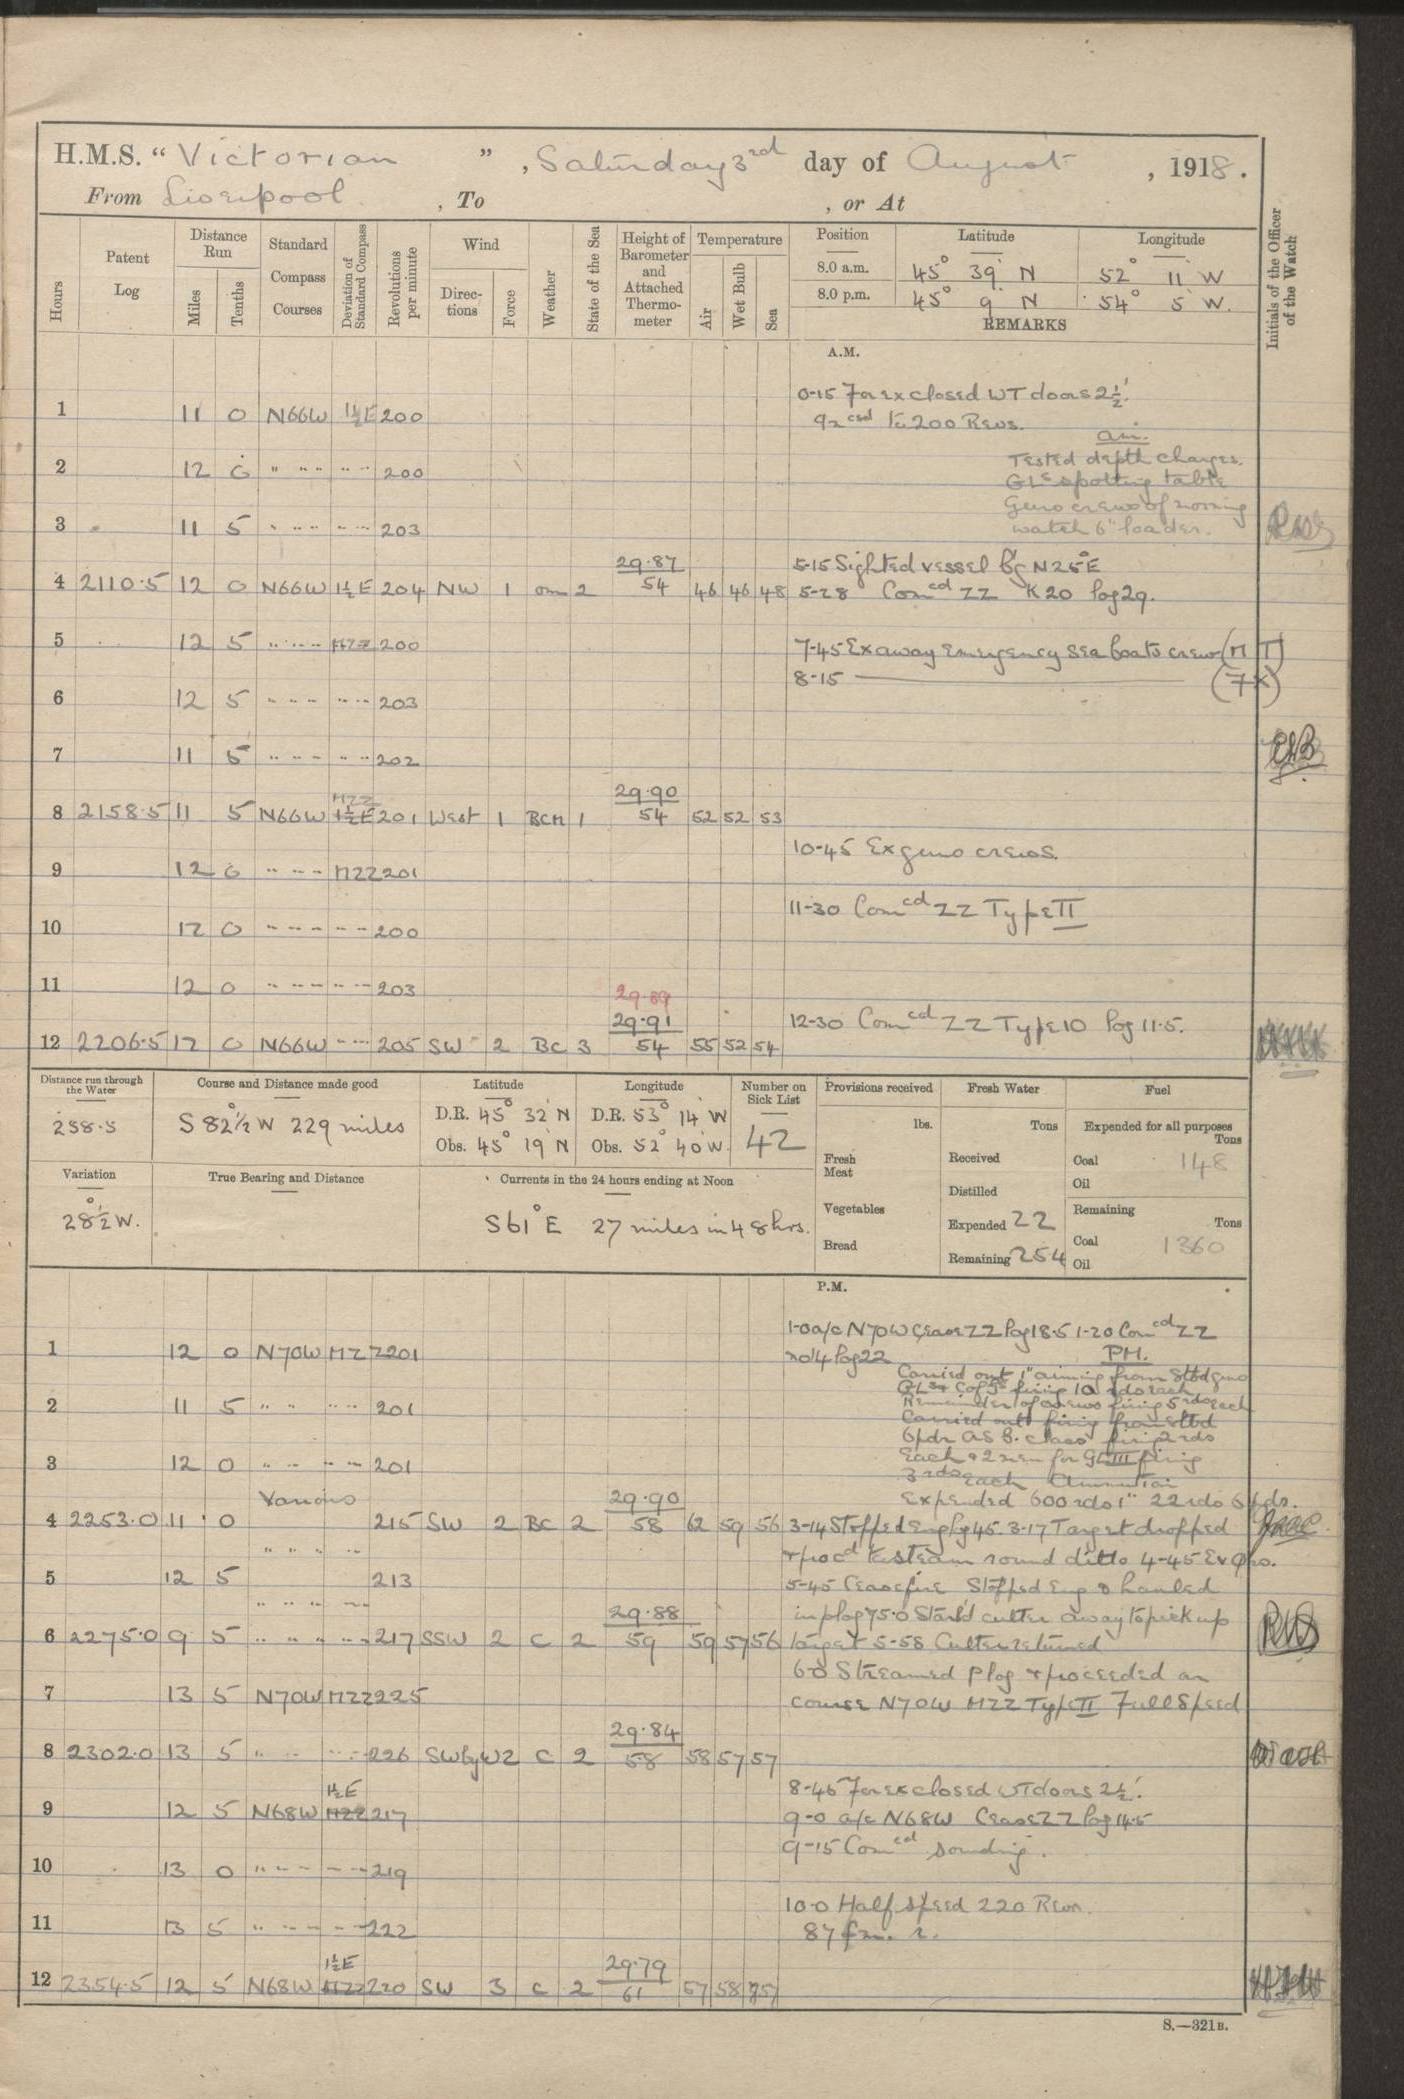 H.M.S. “Victorian ” , Saturday 3rd day of August , 1918.
From Liverpool , To , or At
Hours Patent Log Distance Run Miles Tenths Standard Compass Courses Deviation of Standard Compass Revolutions per minute Wind Directions Force Weather State of the Sea Height of Barometer and Attached Thermometer Temperature Air Wet Bulb Sea Position Latitude Longitude Initials of the Officer of the Watch
8.0 a.m. 45° 39' N 52° 11' W
8.0 p.m. 45° 9' N 54° 5' W.
REMARKS
A.M.
0-15 For ex closed WT doors 2½'.
1 11 0 N66W 1½E 200
Incsd to 200 Revs.
am.
Tested depth charges.
2 12 0 " " " " " 200
GLs spotting table
Guns crews of morning
3 11 5 " " " " " 203
watch 6" loader.
5-15 Sighted vessel bg N25°E
29.87
4 2110.5 12 0 N66W 1½E 204 NW 1 om 2 54 46 46 48 5-28 Comcd ZZ K20 Plog 29.
5 12 5 " " " MZZ 200
7-45 Ex away Emergency sea boats crew (M T)
8-15 (7X)
6 12 5 " " " " " 203
7 11 5 " " " " " 202
EHB
MZZ 29.90
8 2158.5 11 5 N66W 1½E 201 West 1 BCM 1 54 52 52 53
10-45 Ex guns crews.
9 12 0 " " " MZZ 201
11-30 Comcd ZZ Type II
10 12 0 " " " " " 200
11 12 0 " " " " " 203
29.89
29.91
12-30 Comcd ZZ Type 10 Plog 11.5.
12 2206.5 12 0 N66W " " 205 SW 2 BC 3 54 55 52 54
Distance run through the Water Course and Distance made good Latitude Longitude Number on Sick List Provisions received Fresh Water Fuel
258.5 S 82½° W 229 miles D.R. 45° 32' N D.R. 53° 14' W 42 lbs. Tons Expended for all purposes Tons
Obs. 45° 19' N Obs. 52° 40' W. Fresh Meat Received Coal 148
Oil
Variation True Bearing and Distance Currents in the 24 hours ending at Noon Distilled
28½° W. S61°E 27 miles in 48 hrs. Vegetables Expended 22 Remaining Tons
Bread Remaining 254 Coal 1360
Oil
P.M.
1-0 a/c N70W Cease ZZ Plog 18.5 1-20 Comcd ZZ
1 12 0 N70W MZZ 201 no14 Plog 22 PM.
Carried out 1" aiming from Stbd guns
GLs & Cof Gs firing 10 rds each
2 11 5 " " " " 201 Remainder of crews firing 5 rds each
Carried out firing from Stbd
6pdr as B. class firing 2 rds
3 12 0 " " " " 201 Each & 2 men for GLIII firing
3 rds each Ammution
Various 29.90 Expended 600 rds 1" 22 rds 6 pdr.
4 2253.0 11 0 215 SW 2 BC 2 58 62 59 56 3-14 Stopped Eng Plg 45. 3-17 Target dropped
" " " " & procd to steam round ditto 4-45 Ex Qrs.
5 12 5 213 5-45 Cease fire Stopped Eng & hauled
" " " " 29.88 in plog 75.0 Starbd cutter away to pick up
6 2275.0 9 5 " " " " 217 SSW 2 C 2 59 59 57 56 target 5-58 Cutter returned
6-0 Streamed Plog & proceeded on
7 13 5 N70W MZZ 225 course N70W MZZ Type II Full Speed
29.84
8 2302.0 13 5 " " " " 226 SWbyW 2 C 2 58 58 57 57
1½E 8-45 For ex closed WT doors 2½'.
9 12 5 N68W MZZ 217 9-0 a/c N68W Cease ZZ Plog 14.5
9-15 Comcd sounding.
10 13 0 " " " " " 219
10-0 Half speed 220 Revs.
11 13 5 " " " " " 222 87 fm. r.
1½E 29.79
12 2354.5 12 5 N68W MZZ 220 SW 3 C 2 61 57 58 57
S.—321B.